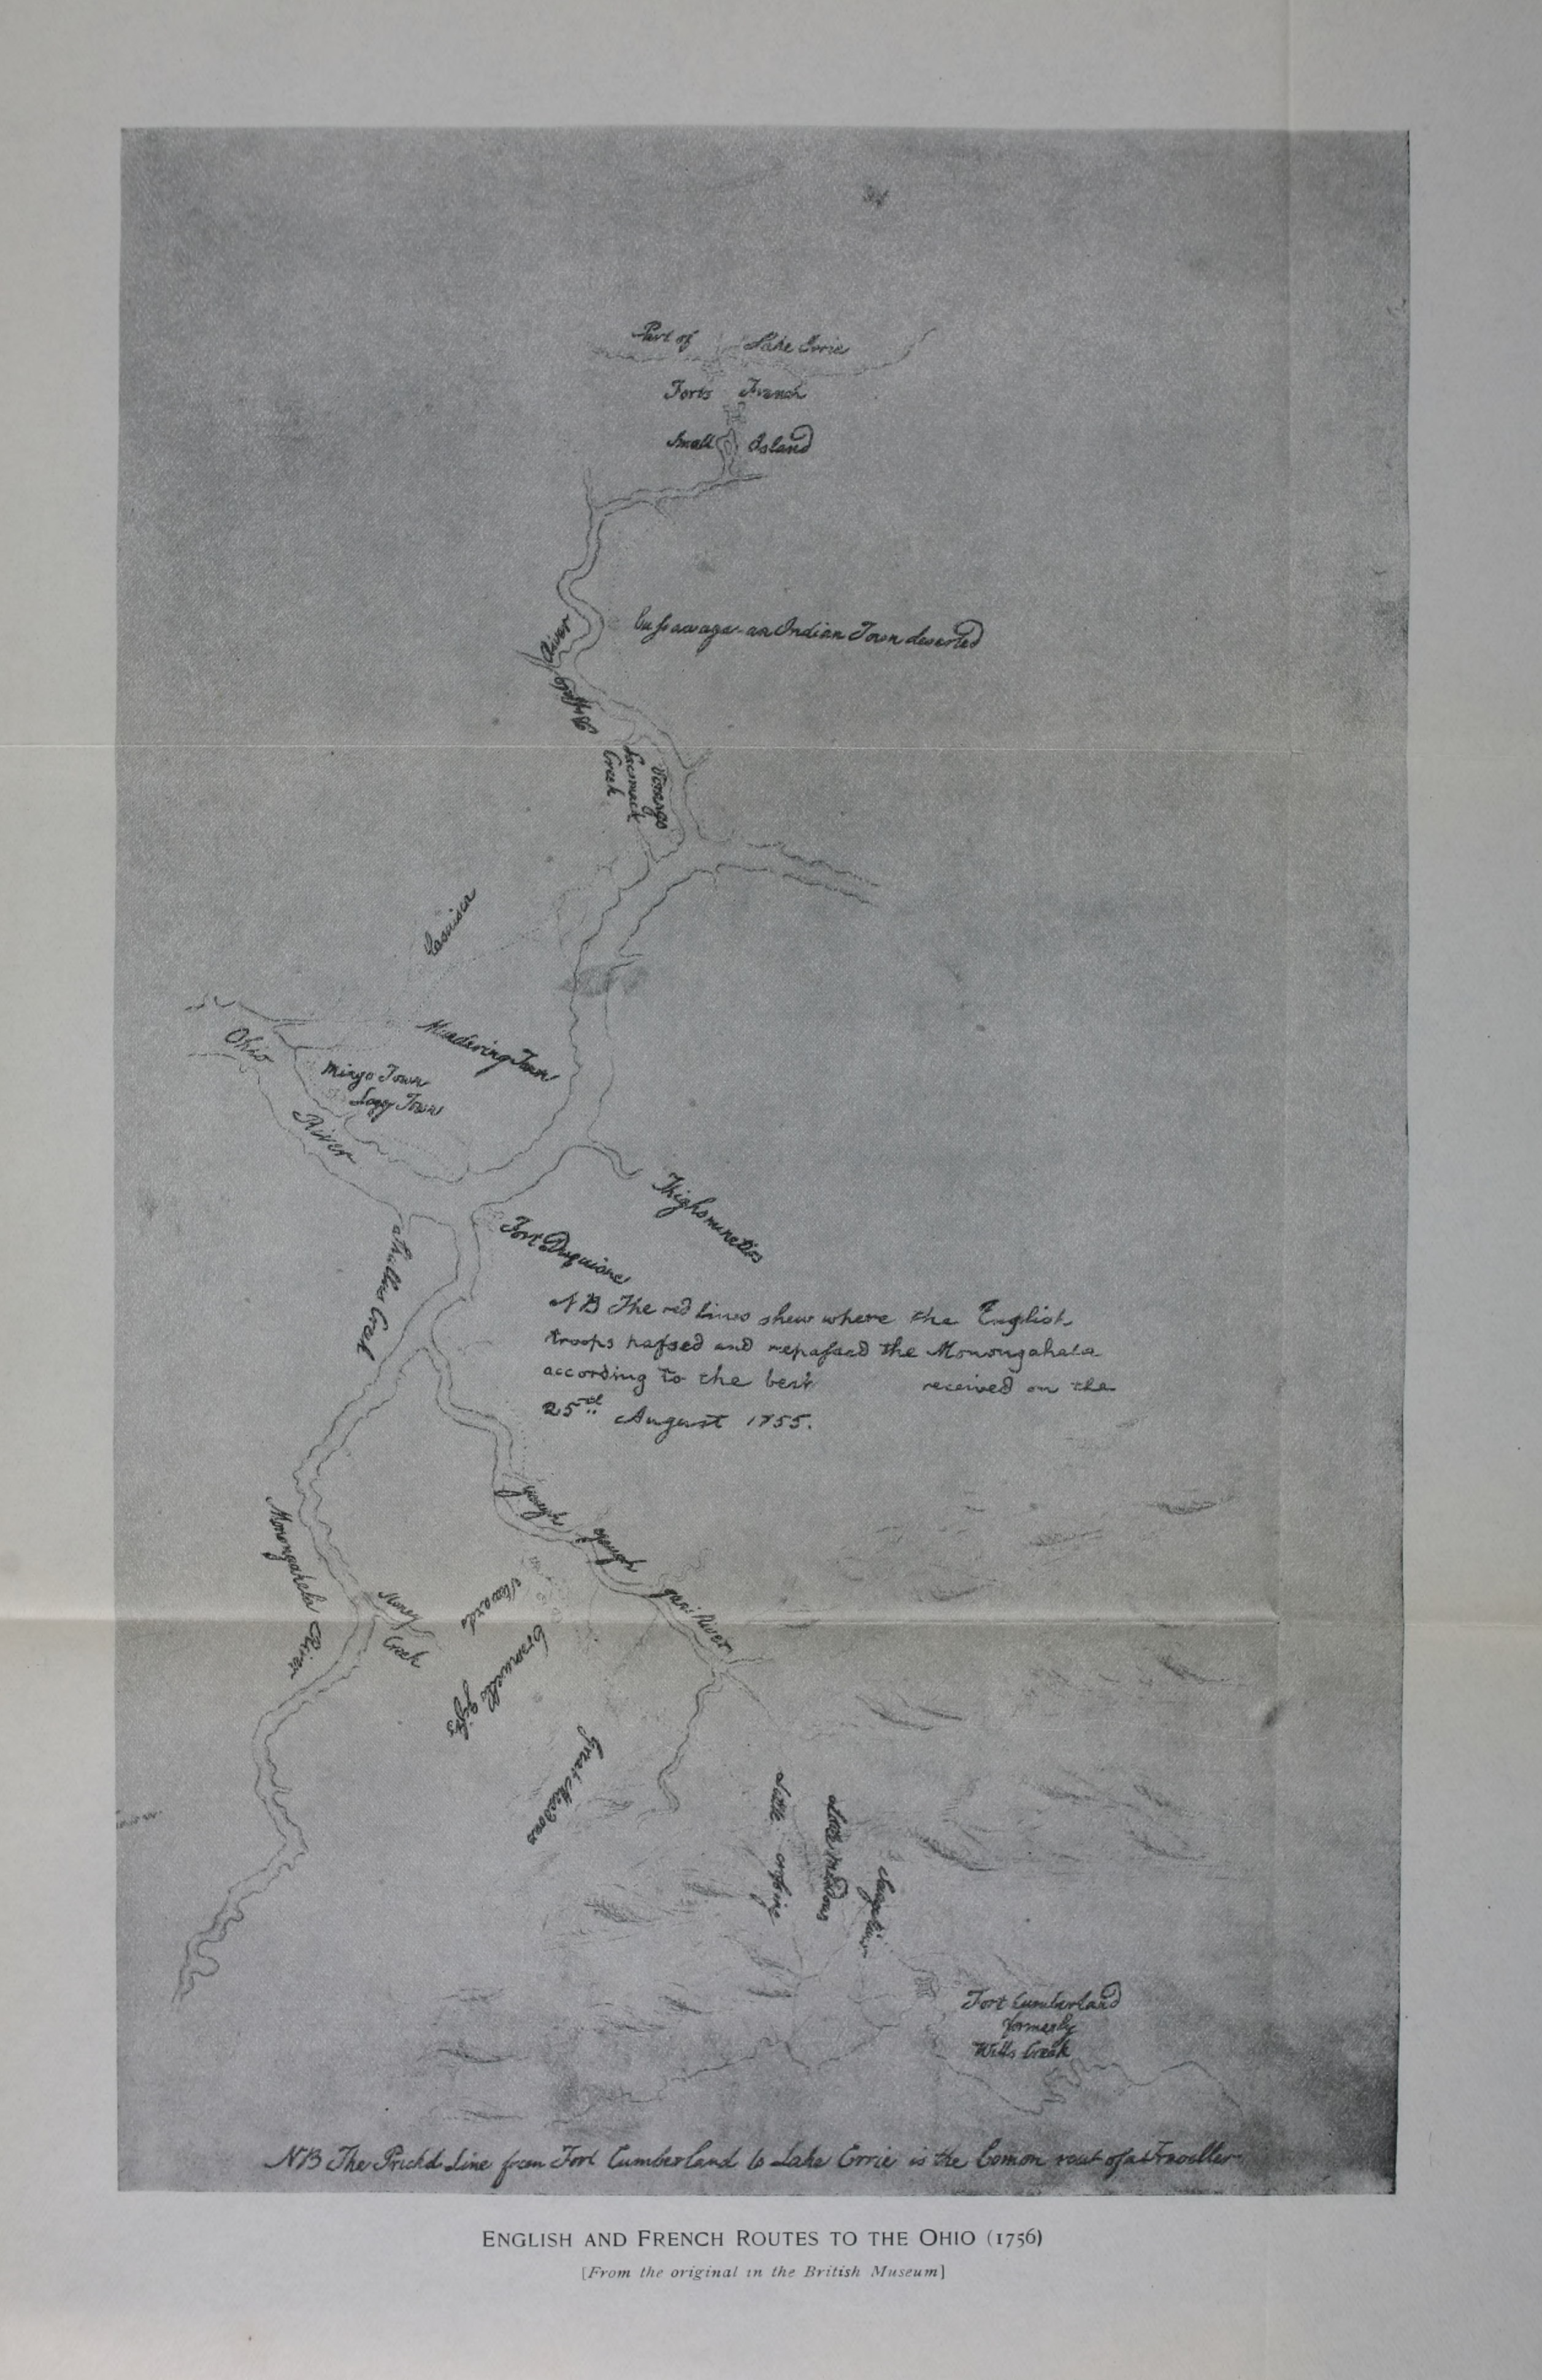 Part of Lake Errie
Forts French
Small Island
Cussawaga an Indian Town deserted
Buffalo River
Venango
Creek
Murdering Town
Ohio River
Mingo Town
Logg Town
Fort Duquisne
Creek
NB The red lines shew where the English
troops passed and repassed the Monongahela
according to the best received on the
25th August 1755.
Yough yough gani River
Monongahela River
Stoney
Creek
Stewards
Great Meadows
Little crossing
Little Meadows
Fort Cumberland
formerly
Wills Creek
NB The Prickd Line from Fort Cumberland to Lake Errie is the Comon rout of a Traveller
ENGLISH AND FRENCH ROUTES TO THE OHIO (1756)
[From the original in the British Museum]